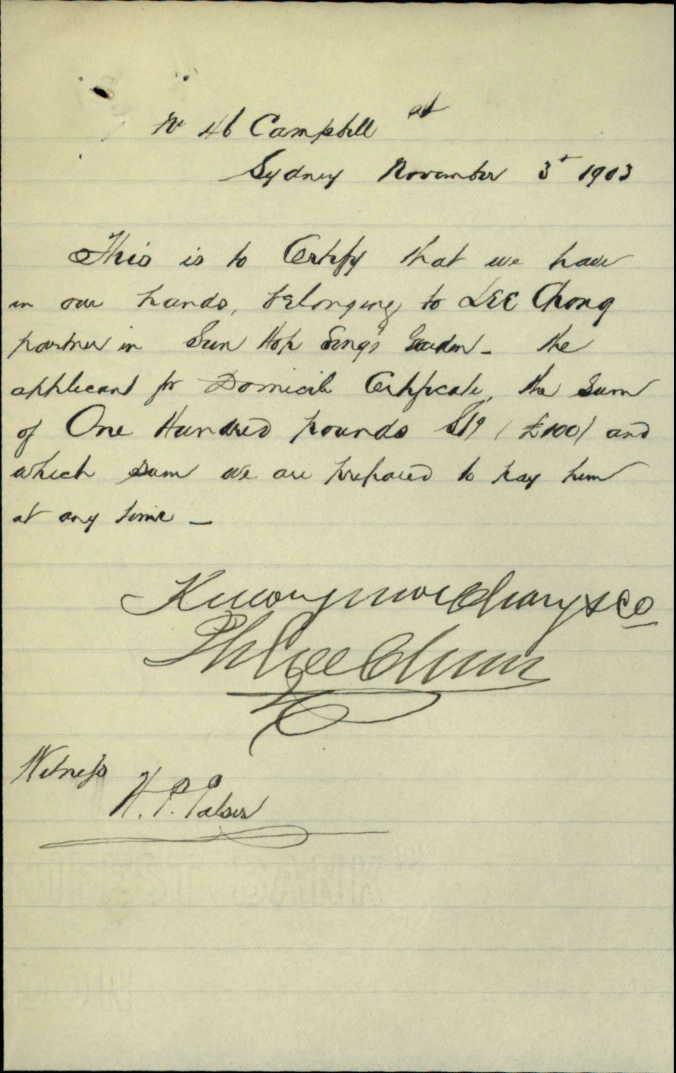 No 46 Campbell St
Sydney November 3rd 1903
This is to Certify that we have
in our hands, belonging to LEE Chong
partner in Sun Hop Sing's Garden - the
applicant for Domicile Certificate, the Sum
of One Hundred pounds Stg (£100) and
which sum we are prepared to pay him
at any time -
Kwong War Chong & Co
Phil Lee Chun
Witness